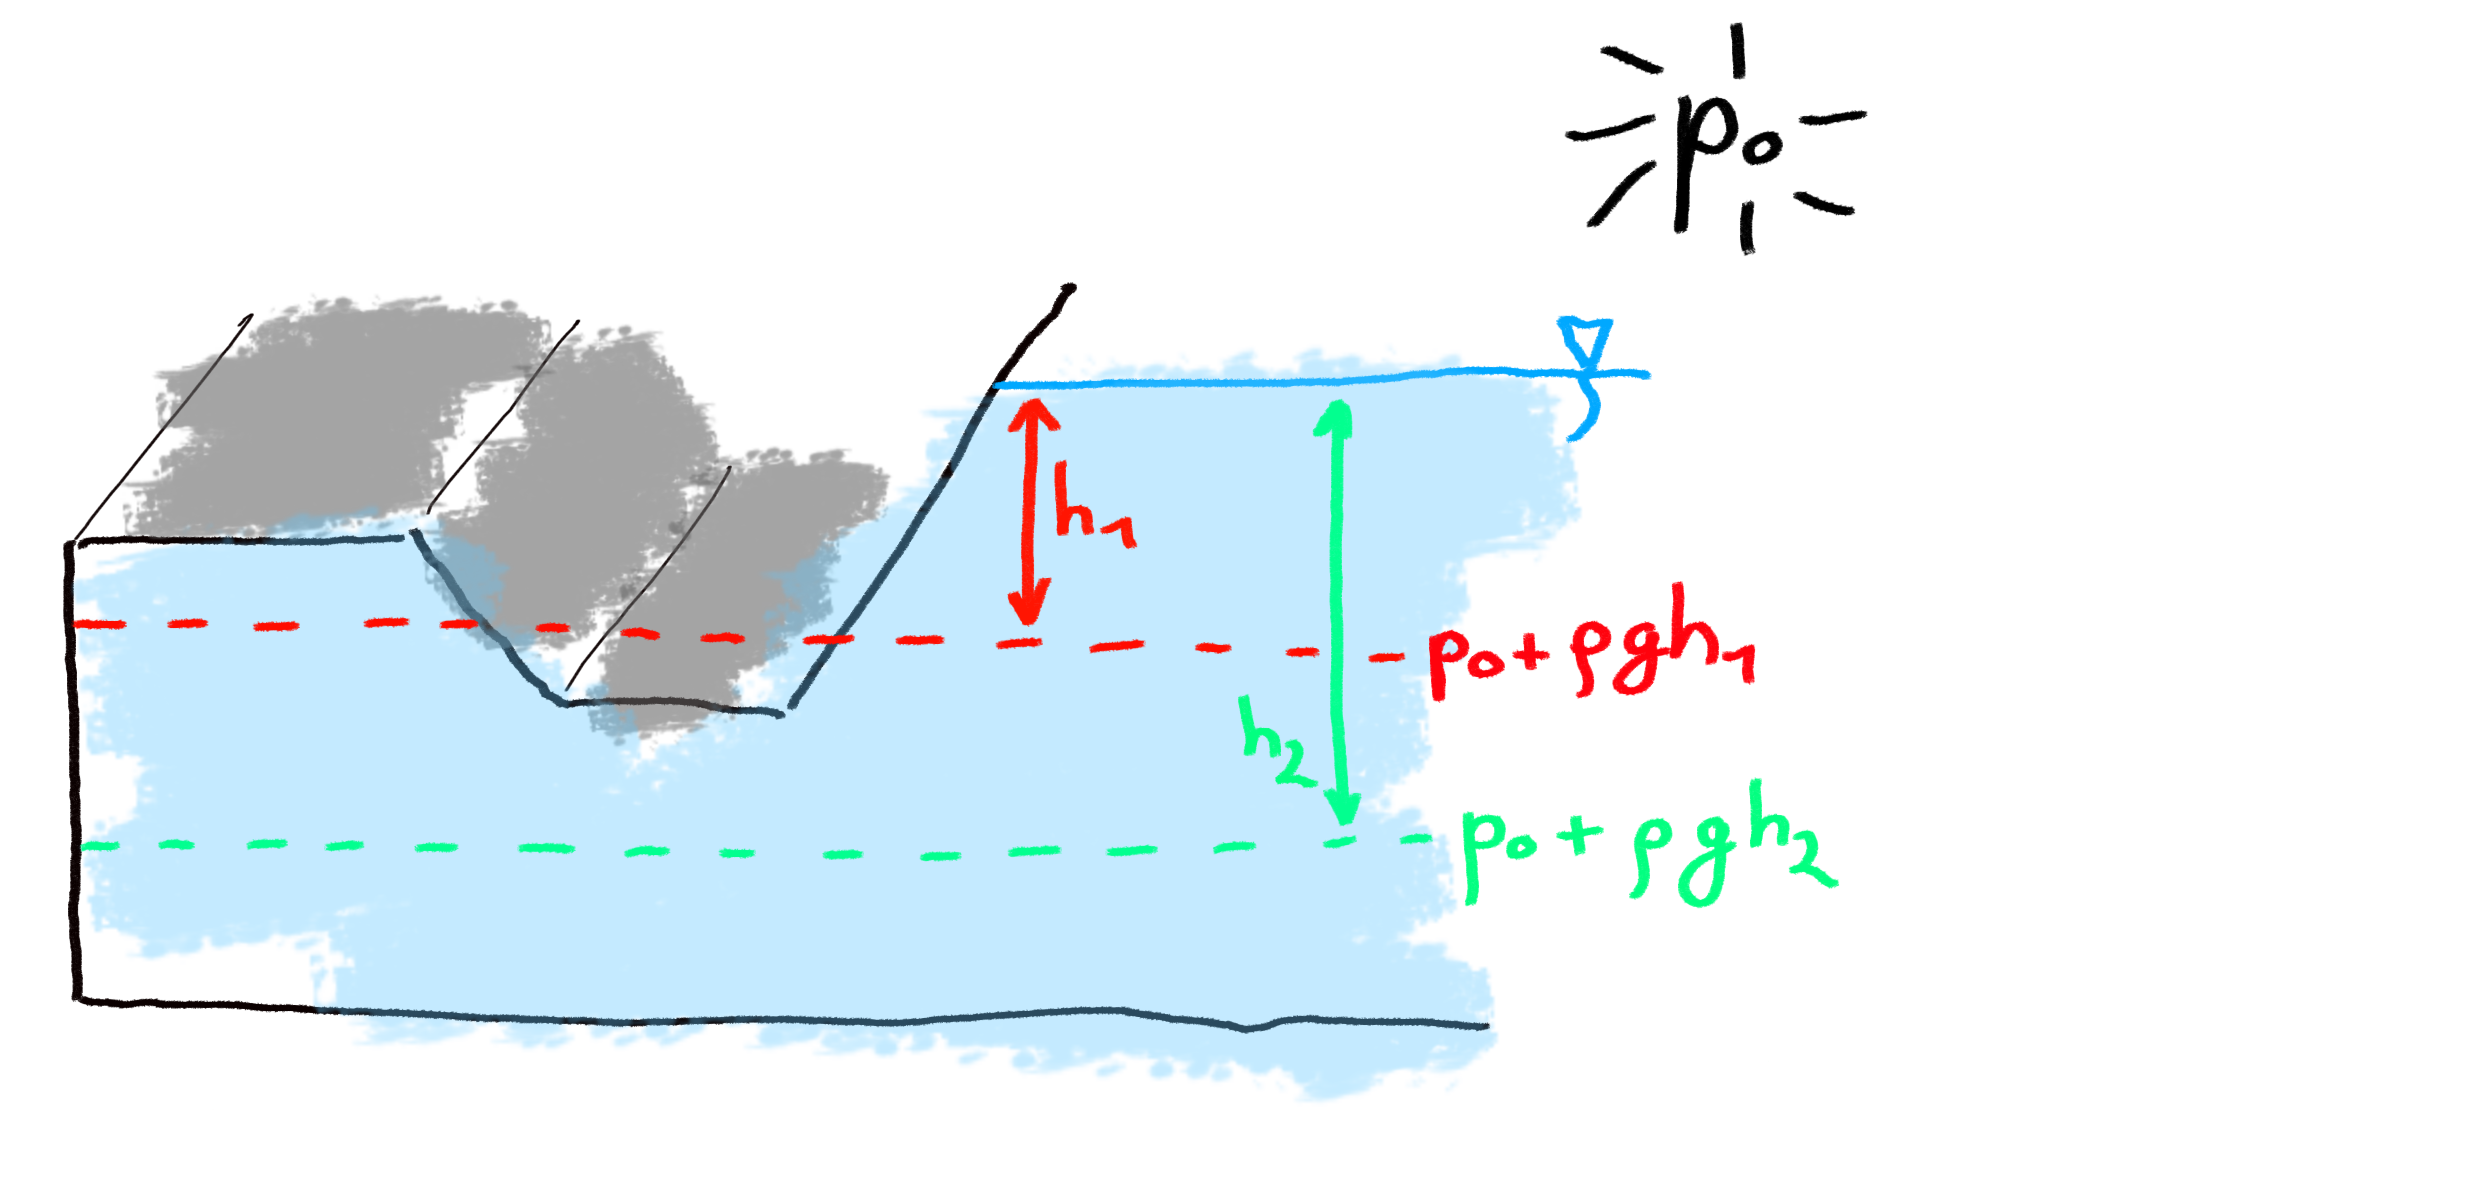 p₀
h₁
p₀ + ρgh₁
h₂
p₀ + ρgh₂